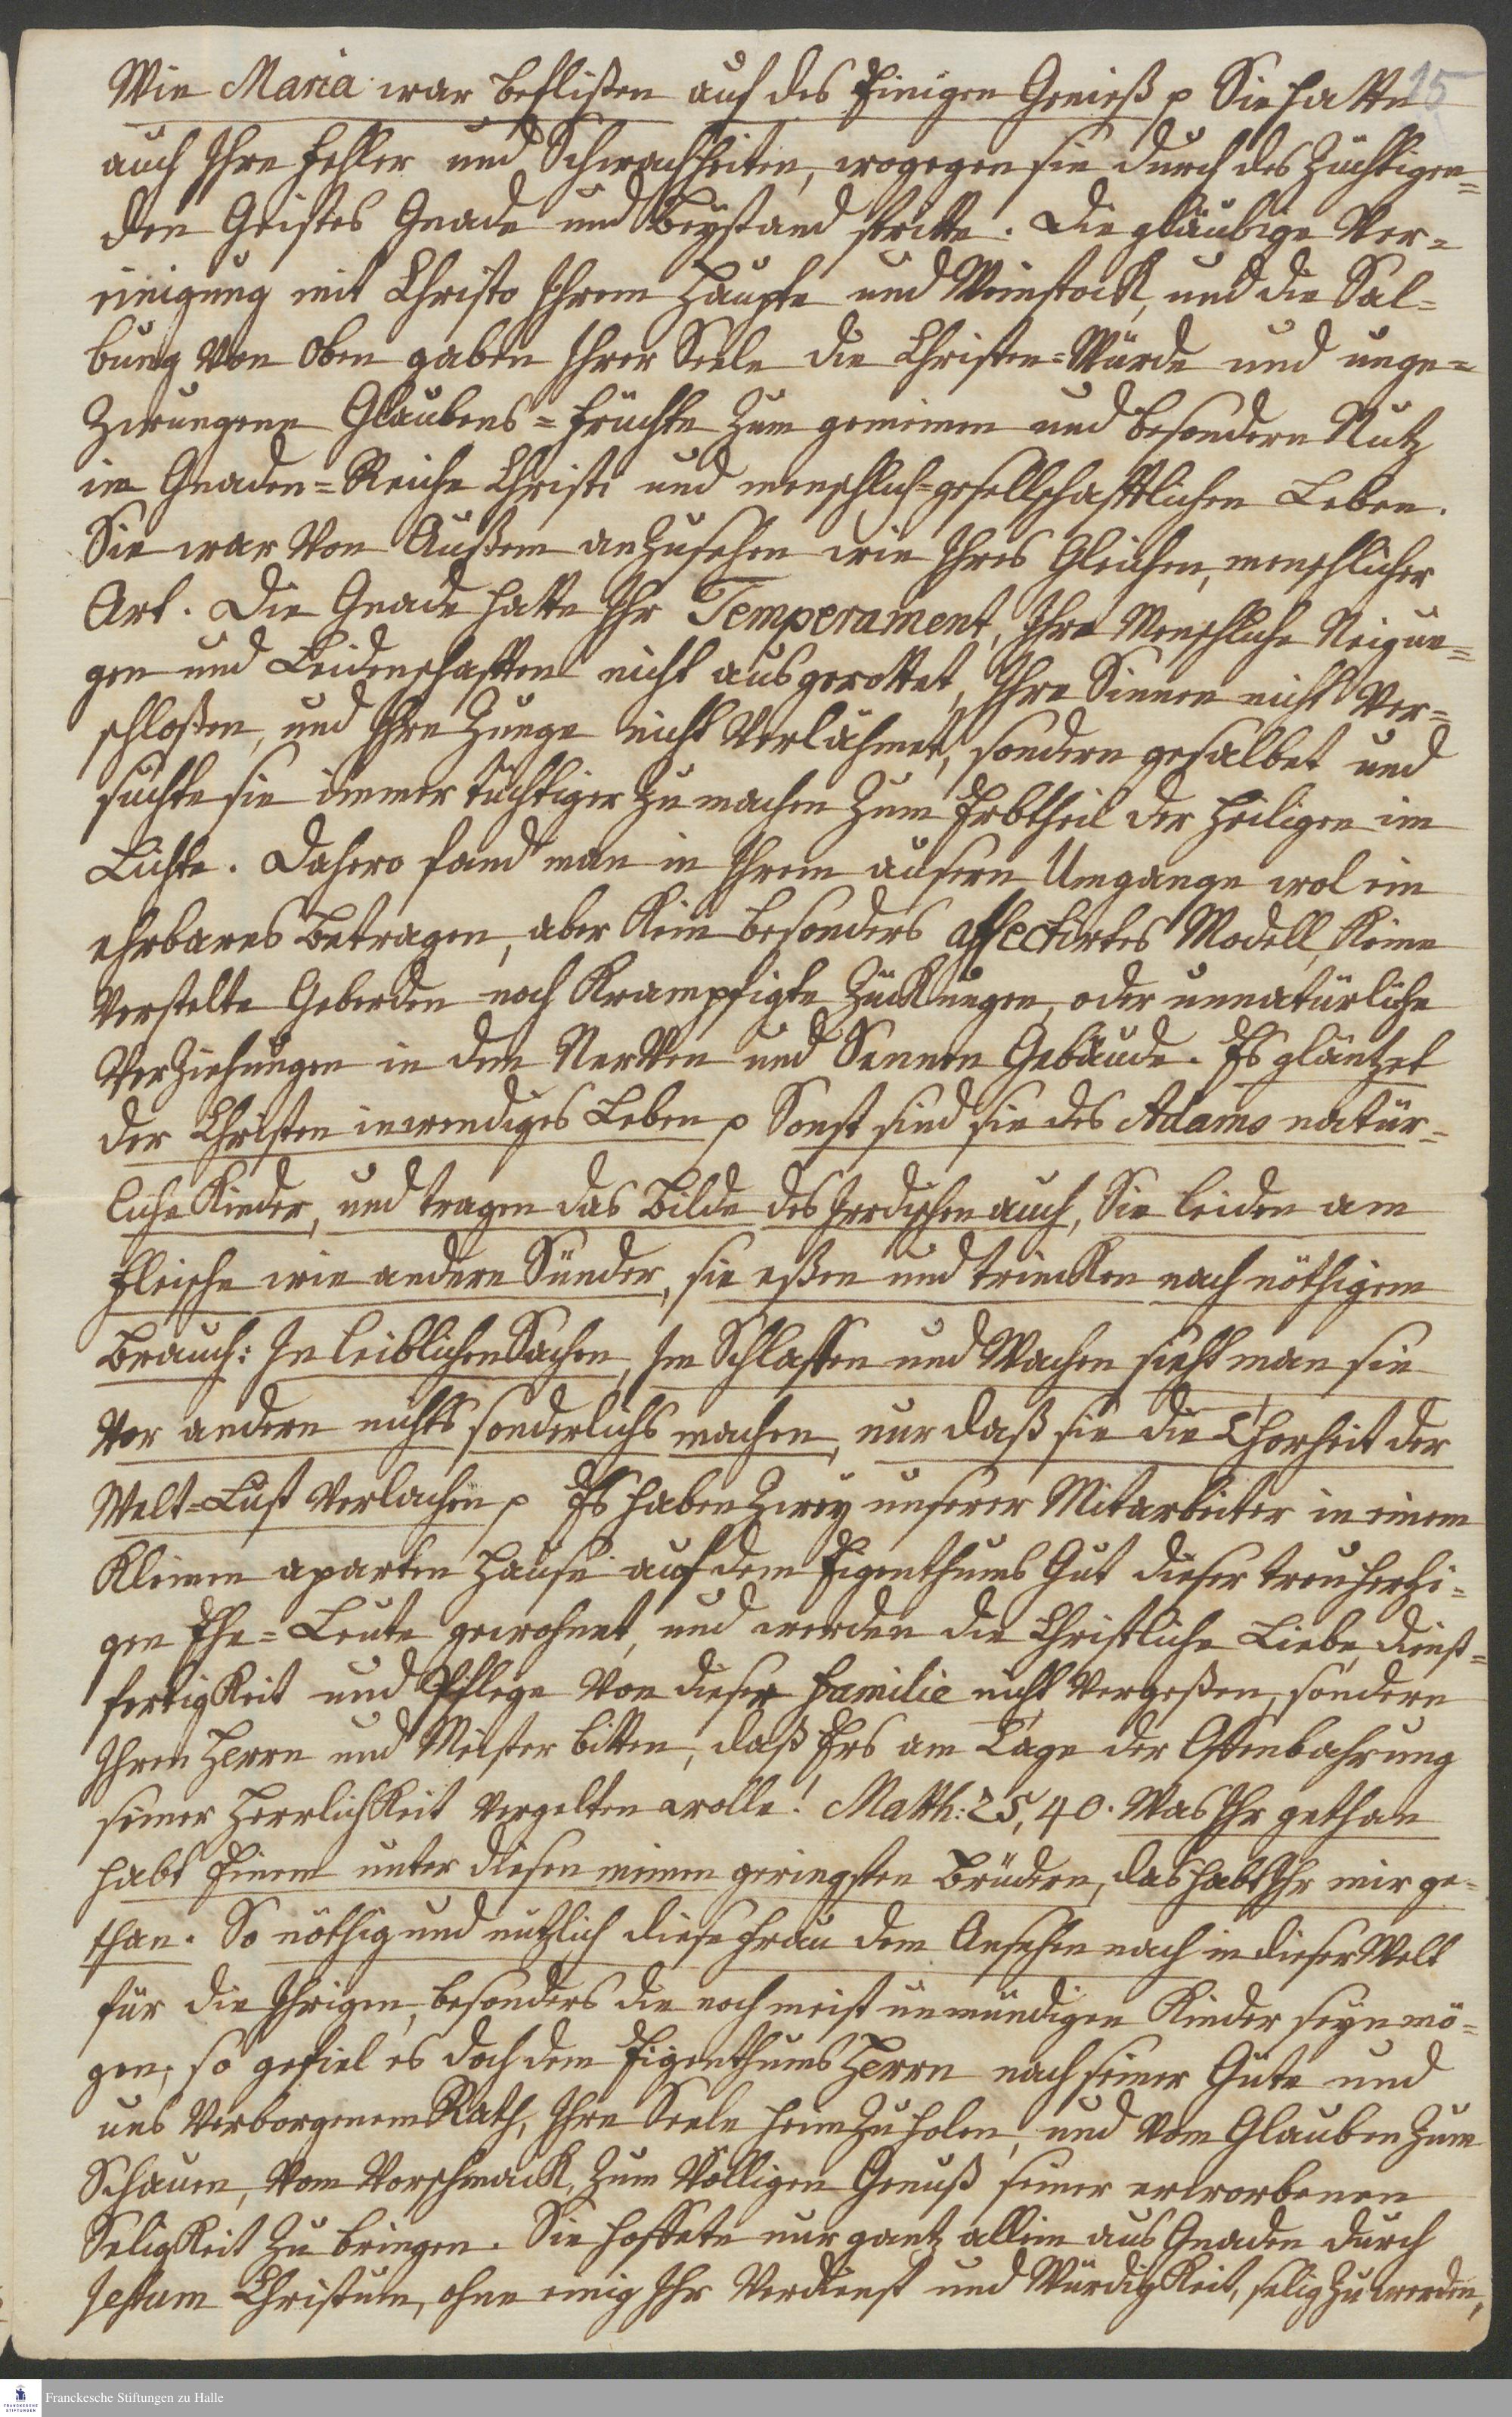 15
Wie Maria war beflißen auf des Einigen Genieß p Sie hatte
auch Ihre Fehler und Schwachheiten, wogegen sie durch des Züchtigen=
den Geistes Gnade und Beystand stritte. Die gläubige Ver=
einigung mit Christo Ihrem Haupte und Weinstock, und die Sal=
bung von Oben gaben Ihrer Seele die Christen=Würde und unge=
zwungene Glaubens=Früchte zum gemeinen und besondern Nutz
im Gnaden=Reiche Christi und menschlich=gesellschafftlichen Leben.
Sie war von Außem anzusehen wie Ihres Gleichen, menschlicher
Art. Die Gnade hatte Ihr Temperament, Ihre Menschliche Neigun=
gen und Leidenschafften nicht ausgerottet, Ihre Sinnen nicht ver=
schloßen, und Ihre Zunge nicht verlähmet, sondern gesalbet und
suchte sie immer tüchtiger zu machen zum Erbtheil der Heiligen im
Lichte. Dahero fand man in Ihrem äusern Umgange wol ein
ehrbares Betragen, aber kein besonders affectirtes Modell, keine
verstelte Geberden noch Krampfigte Zückungen, oder unnatürliche
Verziehungen in dem Nerven und Sennen Gebäude. Es gläntzet
der Christen inwendiges Leben p Sonst sind sie des Adams natür=
liche Kinder, und tragen das Bilde des Irrdischen auch, Sie leiden am
Fleische wie andere Sünder, sie eßen und trincken nach nöthigem
Brauch: In leiblichen Sachen, Im Schlaffen und Wachen sieht man sie
vor andern nichts sonderlichs machen, nur daß sie die Thorheit der
Welt=Lust verlachen p Es haben zwey unserer Mitarbeiter in einem
kleinen aparten Hause auf dem Eigenthums Gut dieser treuhertzi=
gen Ehe=Leute gewohnet, und werden die Christliche Liebe, dienst=
fertigkeit und Pflege von dieser Familie nicht vergeßen, sondern
Ihren Herrn und Meister bitten, daß Ers am Tage der Offenbahrung
seiner Herrlichkeit vergelten wolle! Matth: 25, 40. Was Ihr gethan
habt Einem unter diesen meinen geringsten Brüdern, das habt Ihr mir ge=
than. So nöthig und nützlich diese Frau dem Ansehen nach in dieser Welt
für die Ihrigen, besonders die noch meist unmündigen Kinder seyn mö=
gen, so gefiel es doch dem Eigenthums Herrn nach seiner Güte und
uns verborgenem Rath, Ihre Seele heimzuholen, und vom Glauben zum
Schauen, vom Vorschmack, zum Völligen Genuß seiner erworbenen
Seligkeit zu bringen. Sie hoffete nur gantz allein aus Gnaden durch
Jesum Christum, ohne einig Ihr Verdienst und Würdigkeit, selig zu werden,
Franckesche Stiftungen zu Halle